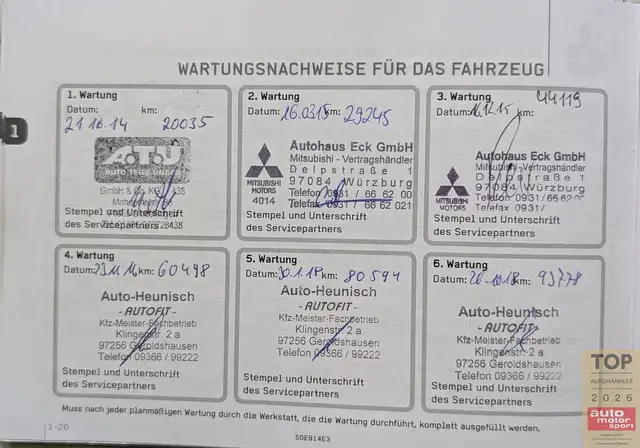 WARTUNGSNACHWEISE FÜR DAS FAHRZEUG
1
1. Wartung
Datum: km:
21 10.14 20035
A.T.U
AUTO-TEILE-UNGER
GmbH & Co. KG
Stempel und Unterschrift
des Servicepartners
2. Wartung
Datum: 16.03.15 km: 29245
Autohaus Eck GmbH
Mitsubishi - Vertragshändler
Delpstraße 1
97084 Würzburg
Telefon 0931 / 66 62 00
Telefax 0931 / 66 62 021
MITSUBISHI
MOTORS
4014
Stempel und Unterschrift
des Servicepartners
3. Wartung 44119
Datum: 16.12.15 km:
Autohaus Eck GmbH
Mitsubishi - Vertragshändler
Delpstraße 1
97084 Würzburg
Telefon 0931 / 66 62 00
Telefax 0931 /
MITSUBISHI
MOTORS
Stempel und Unterschrift
des Servicepartners
4. Wartung
Datum: 23.11.16 km: 60498
Auto-Heunisch
- AUTOFIT -
Kfz-Meister-Fachbetrieb
Klingenstr. 2 a
97256 Geroldshausen
Telefon 09366 / 99222
Stempel und Unterschrift
des Servicepartners
5. Wartung
Datum: 30.1.18 km: 80594
Auto-Heunisch
- AUTOFIT -
Kfz-Meister-Fachbetrieb
Klingenstr. 2 a
97256 Geroldshausen
Telefon 09366 / 99222
Stempel und Unterschrift
des Servicepartners
6. Wartung
Datum: 26.10.18 km: 93778
Auto-Heunisch
- AUTOFIT -
Kfz-Meister-Fachbetrieb
Klingenstr. 2 a
97256 Geroldshausen
Telefon 09366 / 99222
Stempel und Unterschrift
des Servicepartners
Muss nach jeder planmäßigen Wartung durch die Werkstatt, die die Wartung durchführt, komplett ausgefüllt werden.
1-20
S0E914E3
TOP
AUTOHÄNDLER
2026
auto
motor
sport